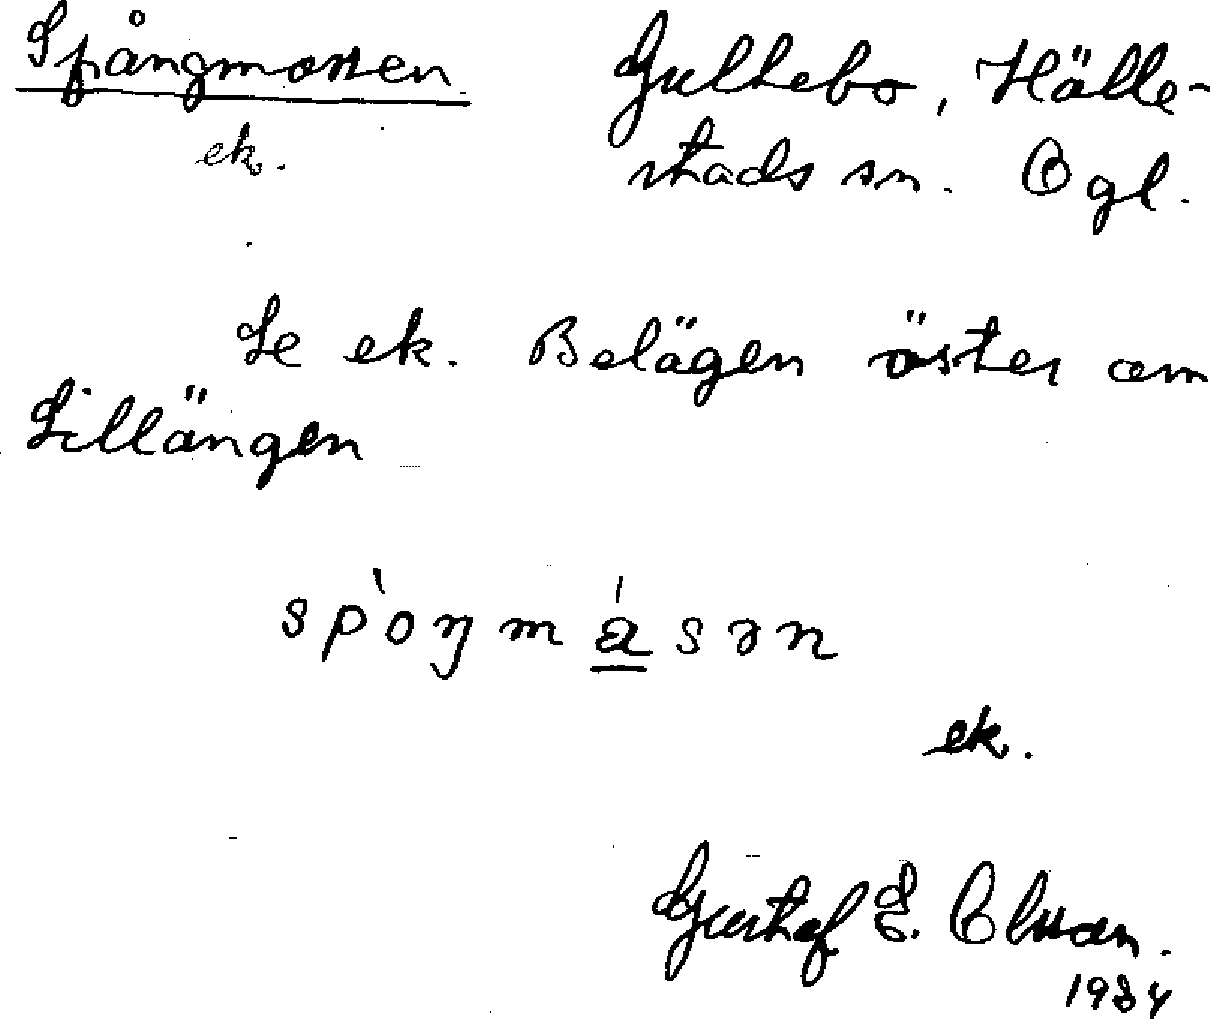 Spångmossen Gullebo, Hälle-
ek. stads sn. Ögl.
Se ek. Belägen öster om
Lillängen
sp'oŋmásən
ek.
Gustaf E. Olsson.
1934